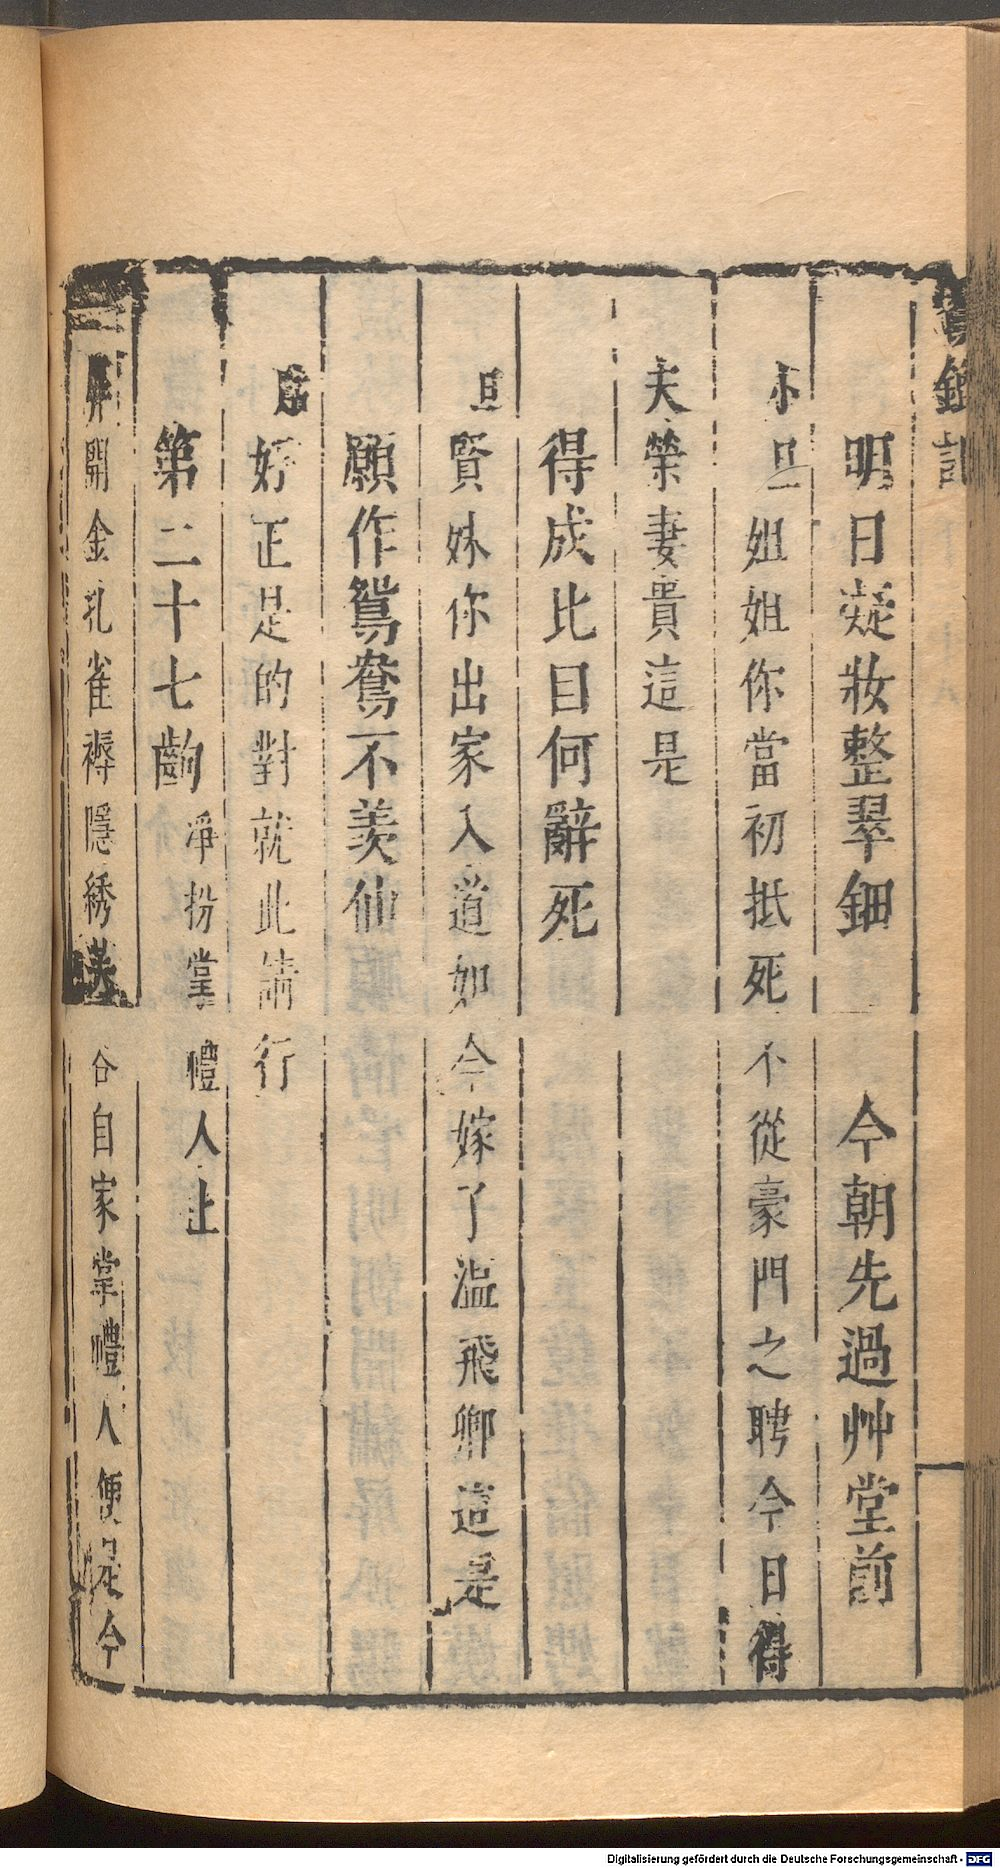 鸞鎞記
明日凝妝整翠鈿　今朝先過艸堂前
小旦　姐姐你當初抵死不從豪門之聘今日得
夫榮妻貴這是
得成比目何辭死
旦　賢妹你出家入道如今嫁了溫飛卿這是
願作鴛鴦不羨仙
好正是的對就此請行
第二十七齣　淨扮掌禮人上
屏開金孔雀褥隱綉芙蓉自家掌禮人便是今
Digitalisierung gefördert durch die Deutsche Forschungsgemeinschaft - DFG